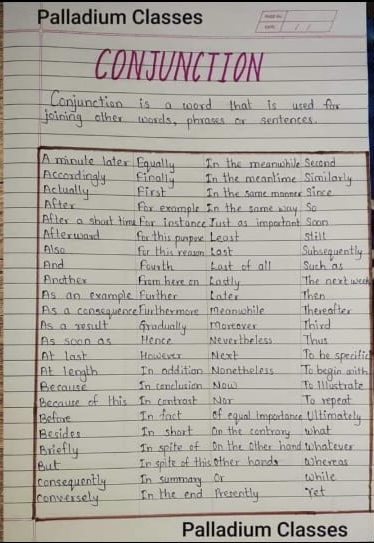 Palladium Classes
PAGE NO.
DATE: / /
CONJUNCTION
Conjunction is a word that is used for
joining other words, phrases or sentences.
A minute later Equally In the meanwhile Second
Accordingly Finally In the meantime Similarly
Actually First In the same manner Since
After For example In the same way So
After a short time For instance Just as important Soon
Afterward for this purpose Least Still
Also For this reason Last Subsequently
And Fourth Last of all Such as
Another From here on Lastly The next week
As an example Further Later Then
As a consequence Furthermore Meanwhile Thereafter
As a result Gradually Moreover Third
As soon as Hence Nevertheless Thus
At last However Next To be specific
At length In addition Nonetheless To begin with
Because In conclusion Now To illustrate
Because of this In contrast Nor To repeat
Before In fact Of equal Importance Ultimately
Besides In short On the contrary what
Briefly In spite of On the Other hand whatever
But In spite of this Other hands Whereas
Consequently In summary Or While
Conversely In the end Presently Yet
Palladium Classes